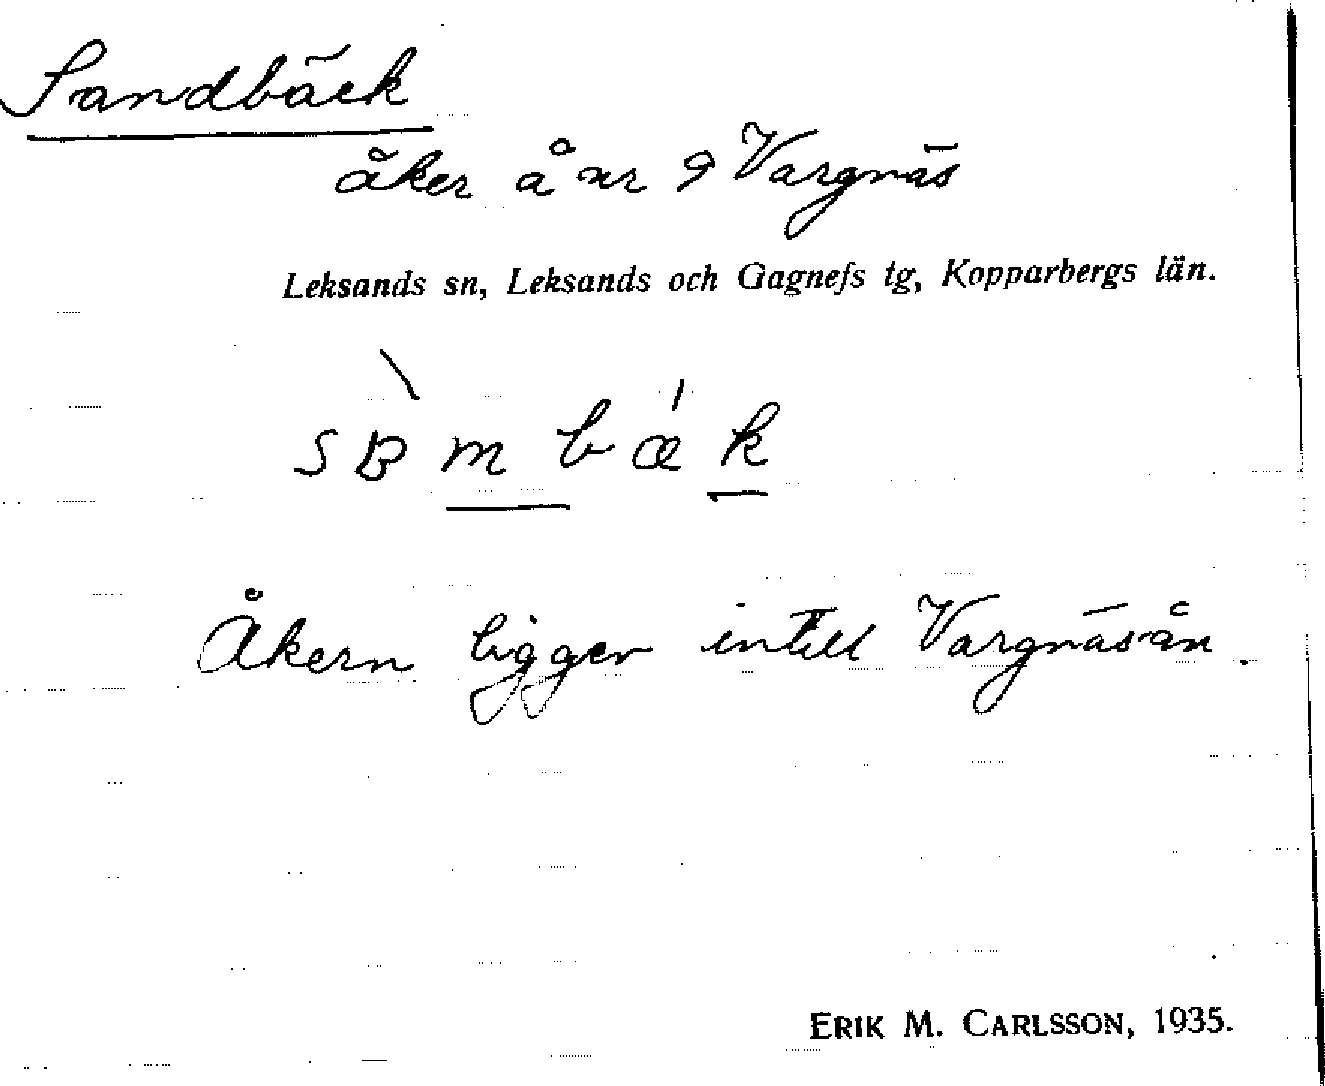 Sandbäck
åker å nr 9 Vargnäs
Leksands sn, Leksands och Gagnefs tg, Kopparbergs län.
Åkern ligger intill Vargnäsån.
ERIK M. CARLSSON, 1935.